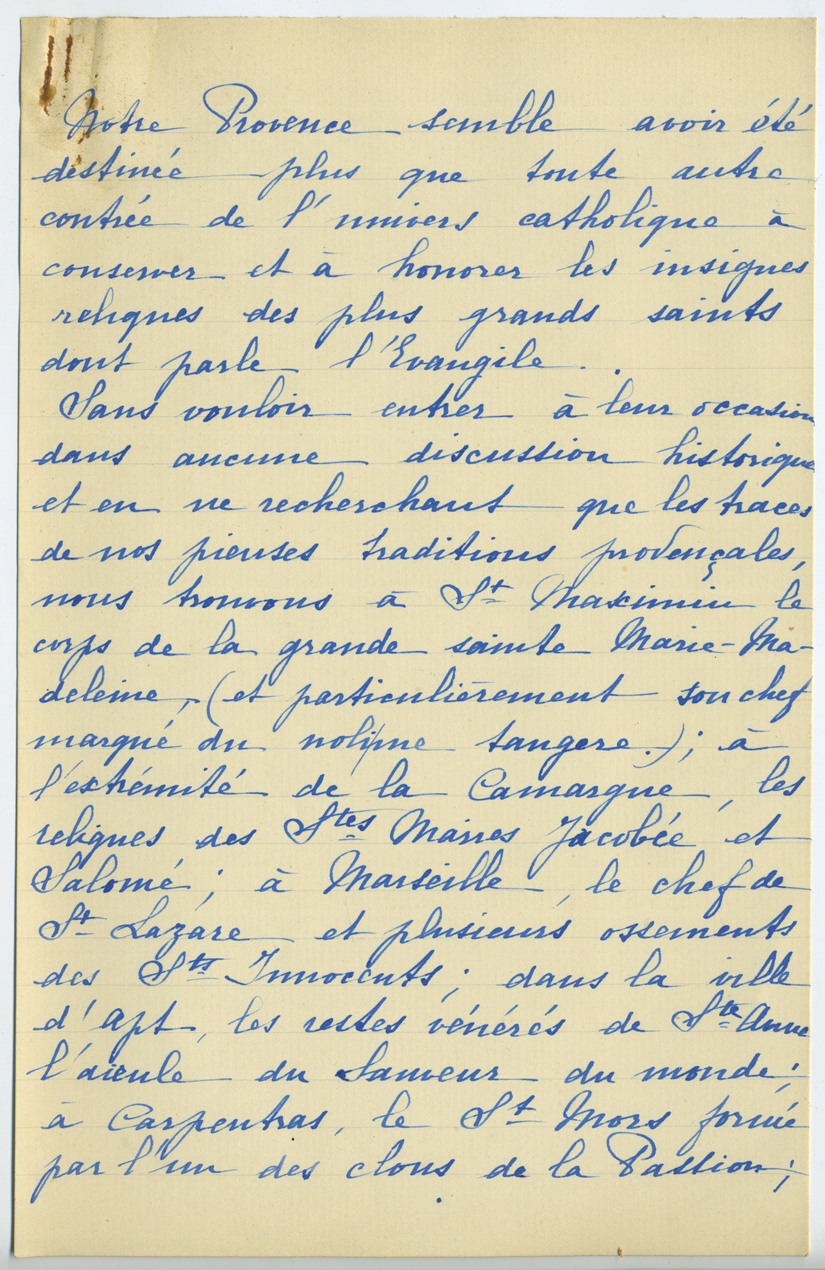 Notre Provence semble avoir été
destinée plus que toute autre
contrée de l'univers catholique à
conserver et à honorer les insignes
reliques des plus grands saints
dont parle l'Evangile.
Sans vouloir entrer à leur occasion
dans aucune discussion historique
et en ne recherchant que les traces
de nos pieuses traditions provençales,
nous trouvons à St Maximin le
corps de la grande sainte Marie-Ma-
deleine, (et particulièrement son chef
marqué du noli me tangere.); à
l'extrémité de la Camargue, les
reliques des Stes Maries Jacobée et
Salomé; à Marseille, le chef de
St Lazare et plusieurs ossements
des Sts Innocents; dans la ville
d'Apt, les restes vénérés de Ste Anne
l'aïeule du Sauveur du monde;
à Carpentras, le St Mors formé
par l'un des clous de la Passion;